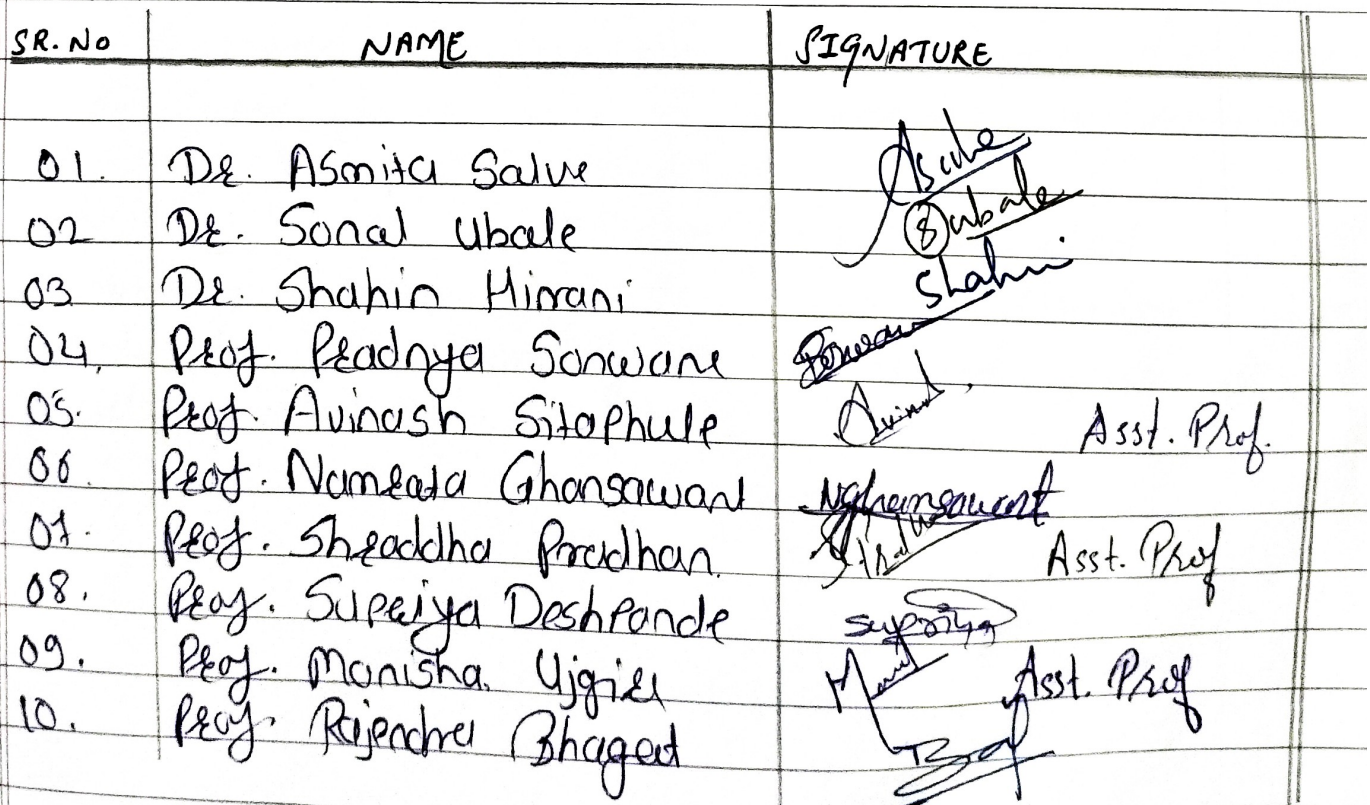 SR. No NAME SIGNATURE
01. Dr. Asmita Salve Asalve
02 Dr. Sonal Ubale Subale
03 Dr. Shahin Hirani Shahin
04. Prof. Pradnya Sonwane
05. Prof. Avinash Sitaphule Avinash Asst. Prof.
06. Prof. Namrata Ghansawant Nghansawant
07. Prof. Shraddha Pradhan. Asst. Prof
08. Prof. Supriya Deshpande Supriya
09. Prof. Manisha. Ujgire Asst. Prof
10. Prof. Rajendra Bhagat